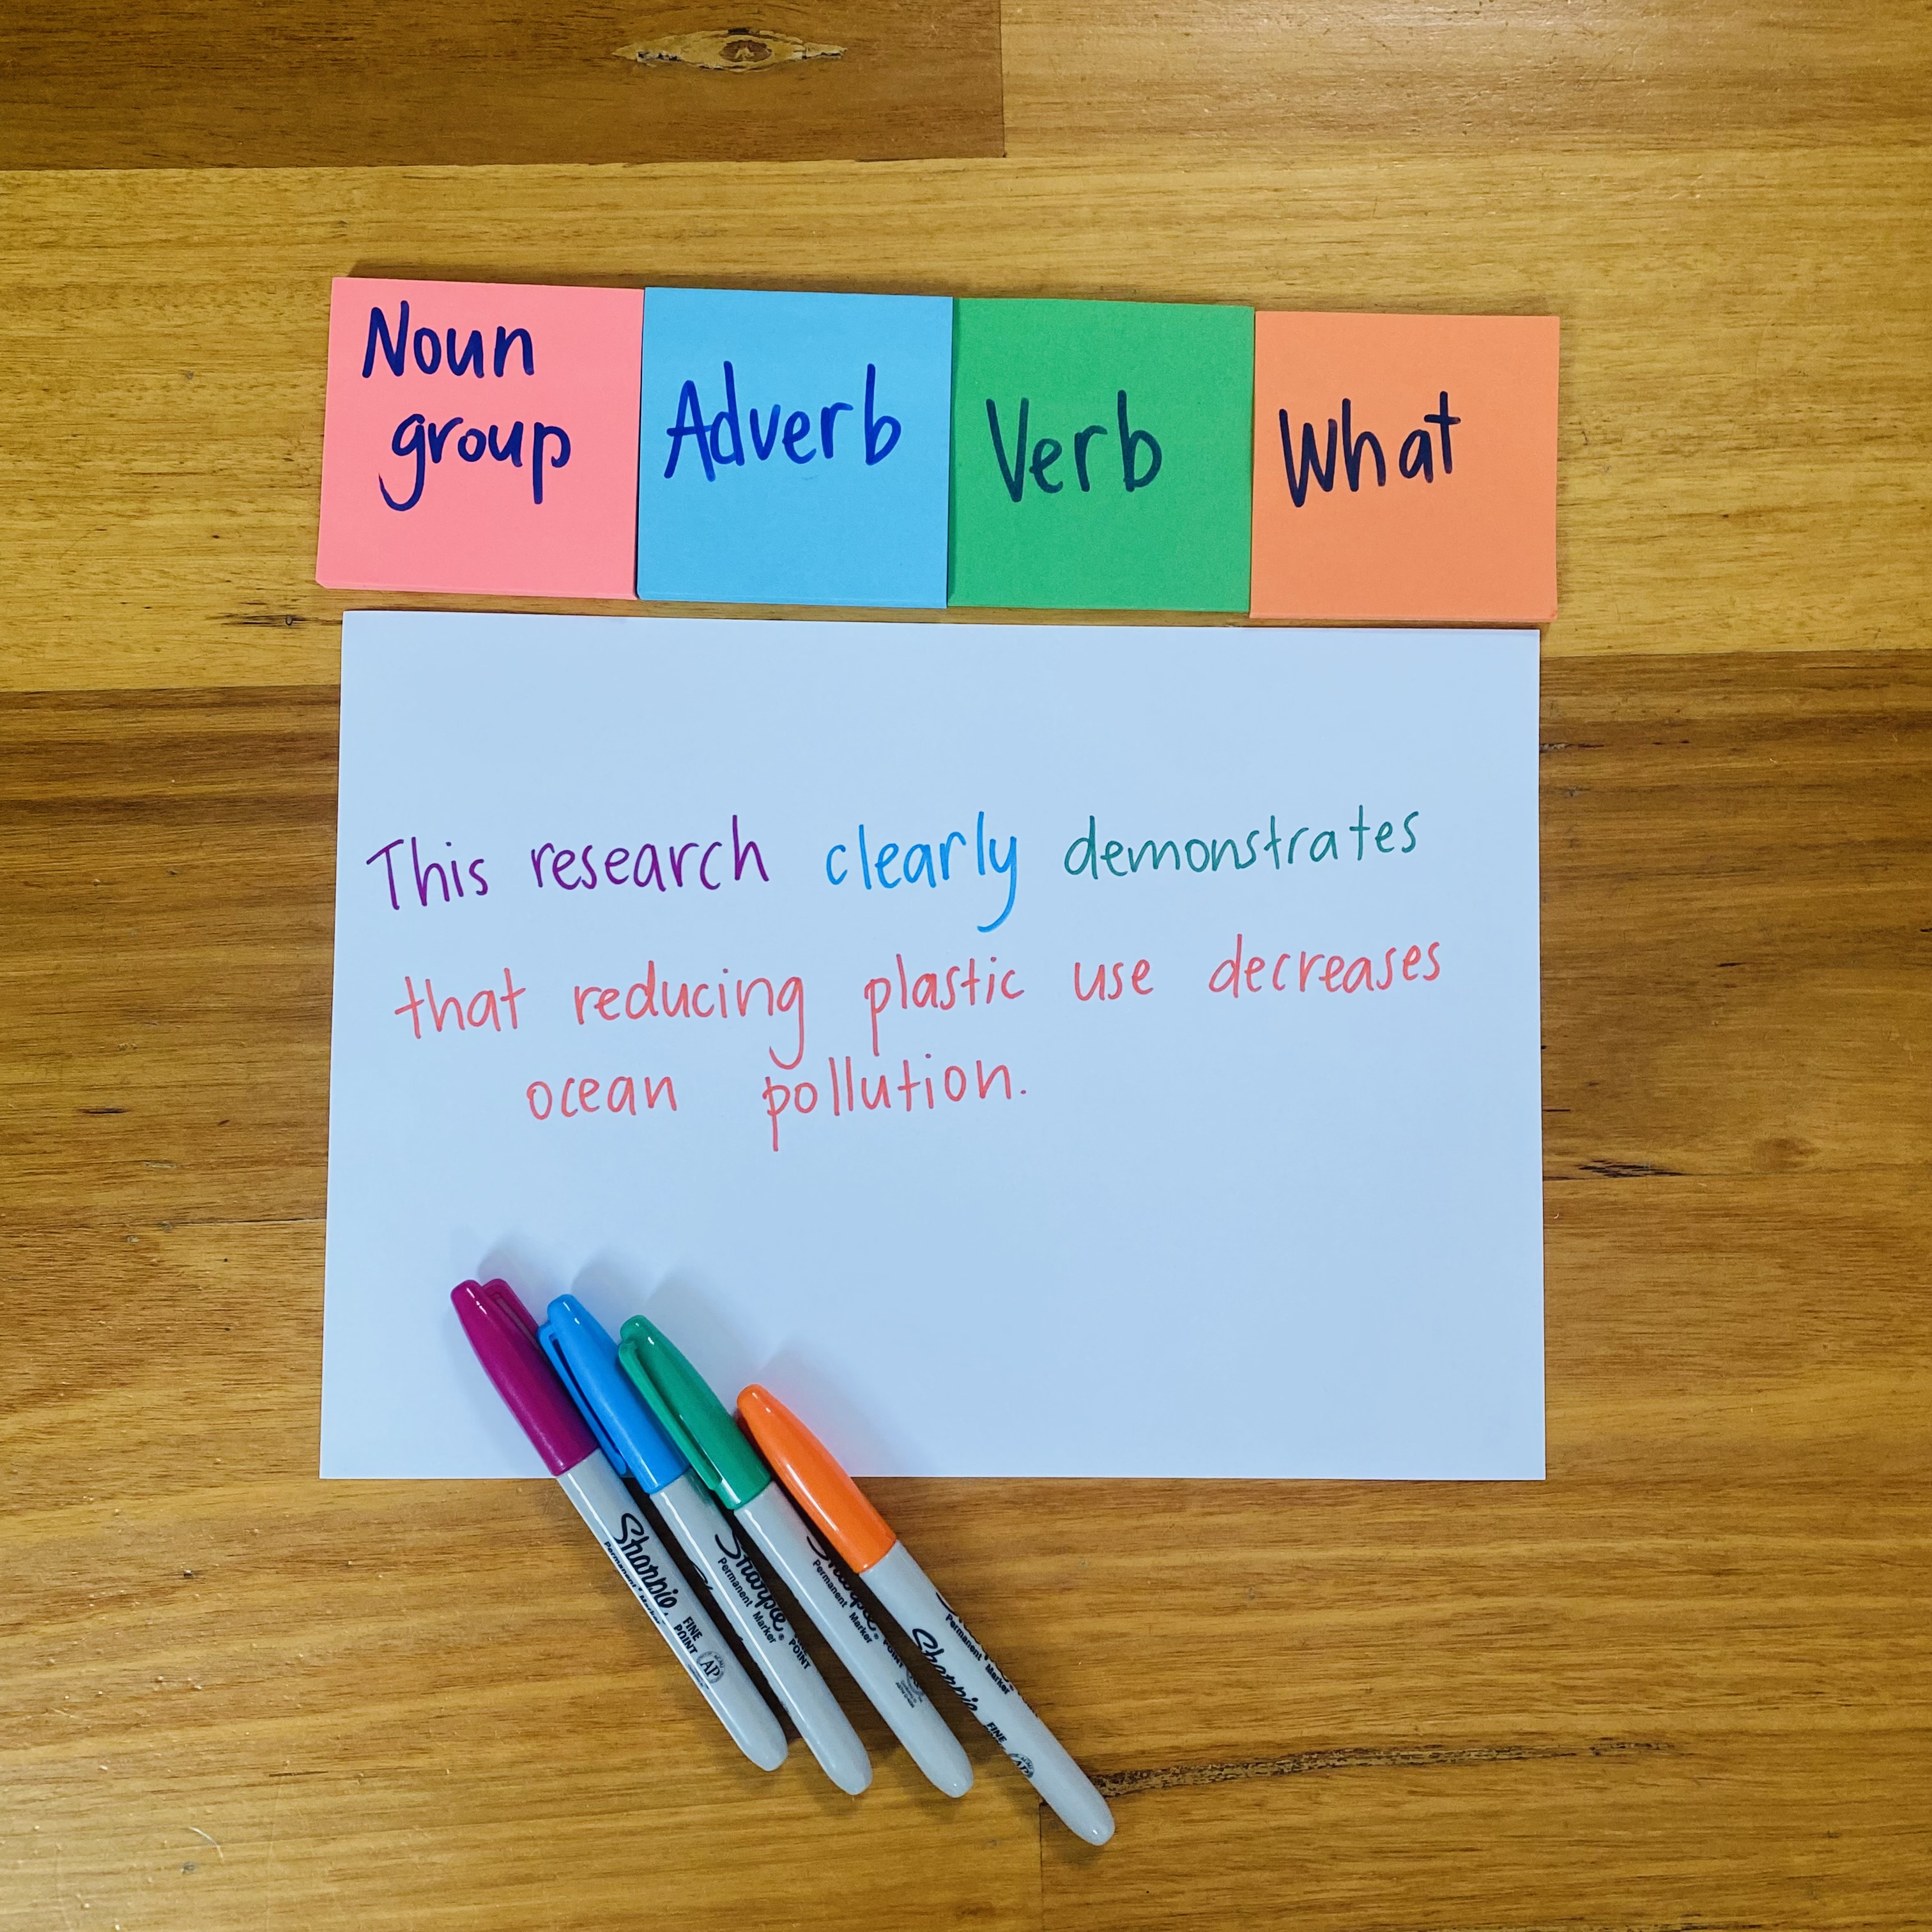 Noun
group
Adverb
Verb
What
This research clearly demonstrates
that reducing plastic use decreases
ocean pollution.
Sharpie
Permanent Marker
FINE
POINT
AP
Sharpie
Permanent Marker
POINT
Sharpie
Permanent Marker
POINT
Permanent Marker
Sharpie
FINE
AP